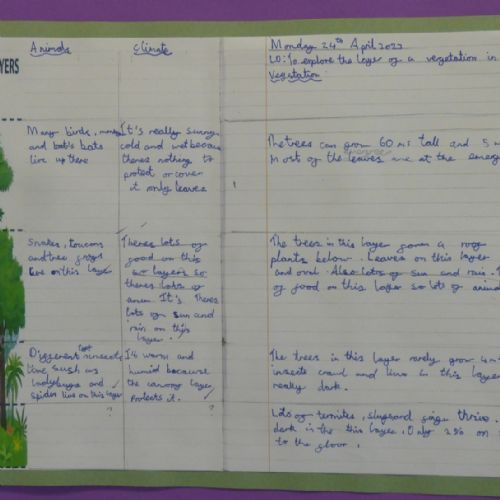 YERS
Animals
Many birds, monkeys
and bat's bats
live up there
Snakes, toucans
and tree frogs
live on this layer
Different insects
live such as
ladybugs and
spider live on this layer
?
Climate
It's really sunny
cold and wet becaus
theres nothing to
protect or cover
it only leaves
Theres lots of
good on this
so layers so
theres lots of
It's. Theres
lots of sun and
rain on this
layer.
It's warm and
humid because
the canopy layer
Protects it.
?
Monday 24th April 2022
LO: To explore the layer of a vegetation in
Vegetation
The trees can grow 60 ms tall and 5 m
Most of the leaves are at the emerge
The trees in this layer form a roof
plants below. Leaves on this layer
and oval. Also lots of sun and rain.
of food on this layer so lots of animal
The trees in this layer rarely grow 4m
insects crawl and live in this layer
really dark.
Lots of termites, slugs and fungi thrive.
dark in the this layer, Only 2% on
to the floor.